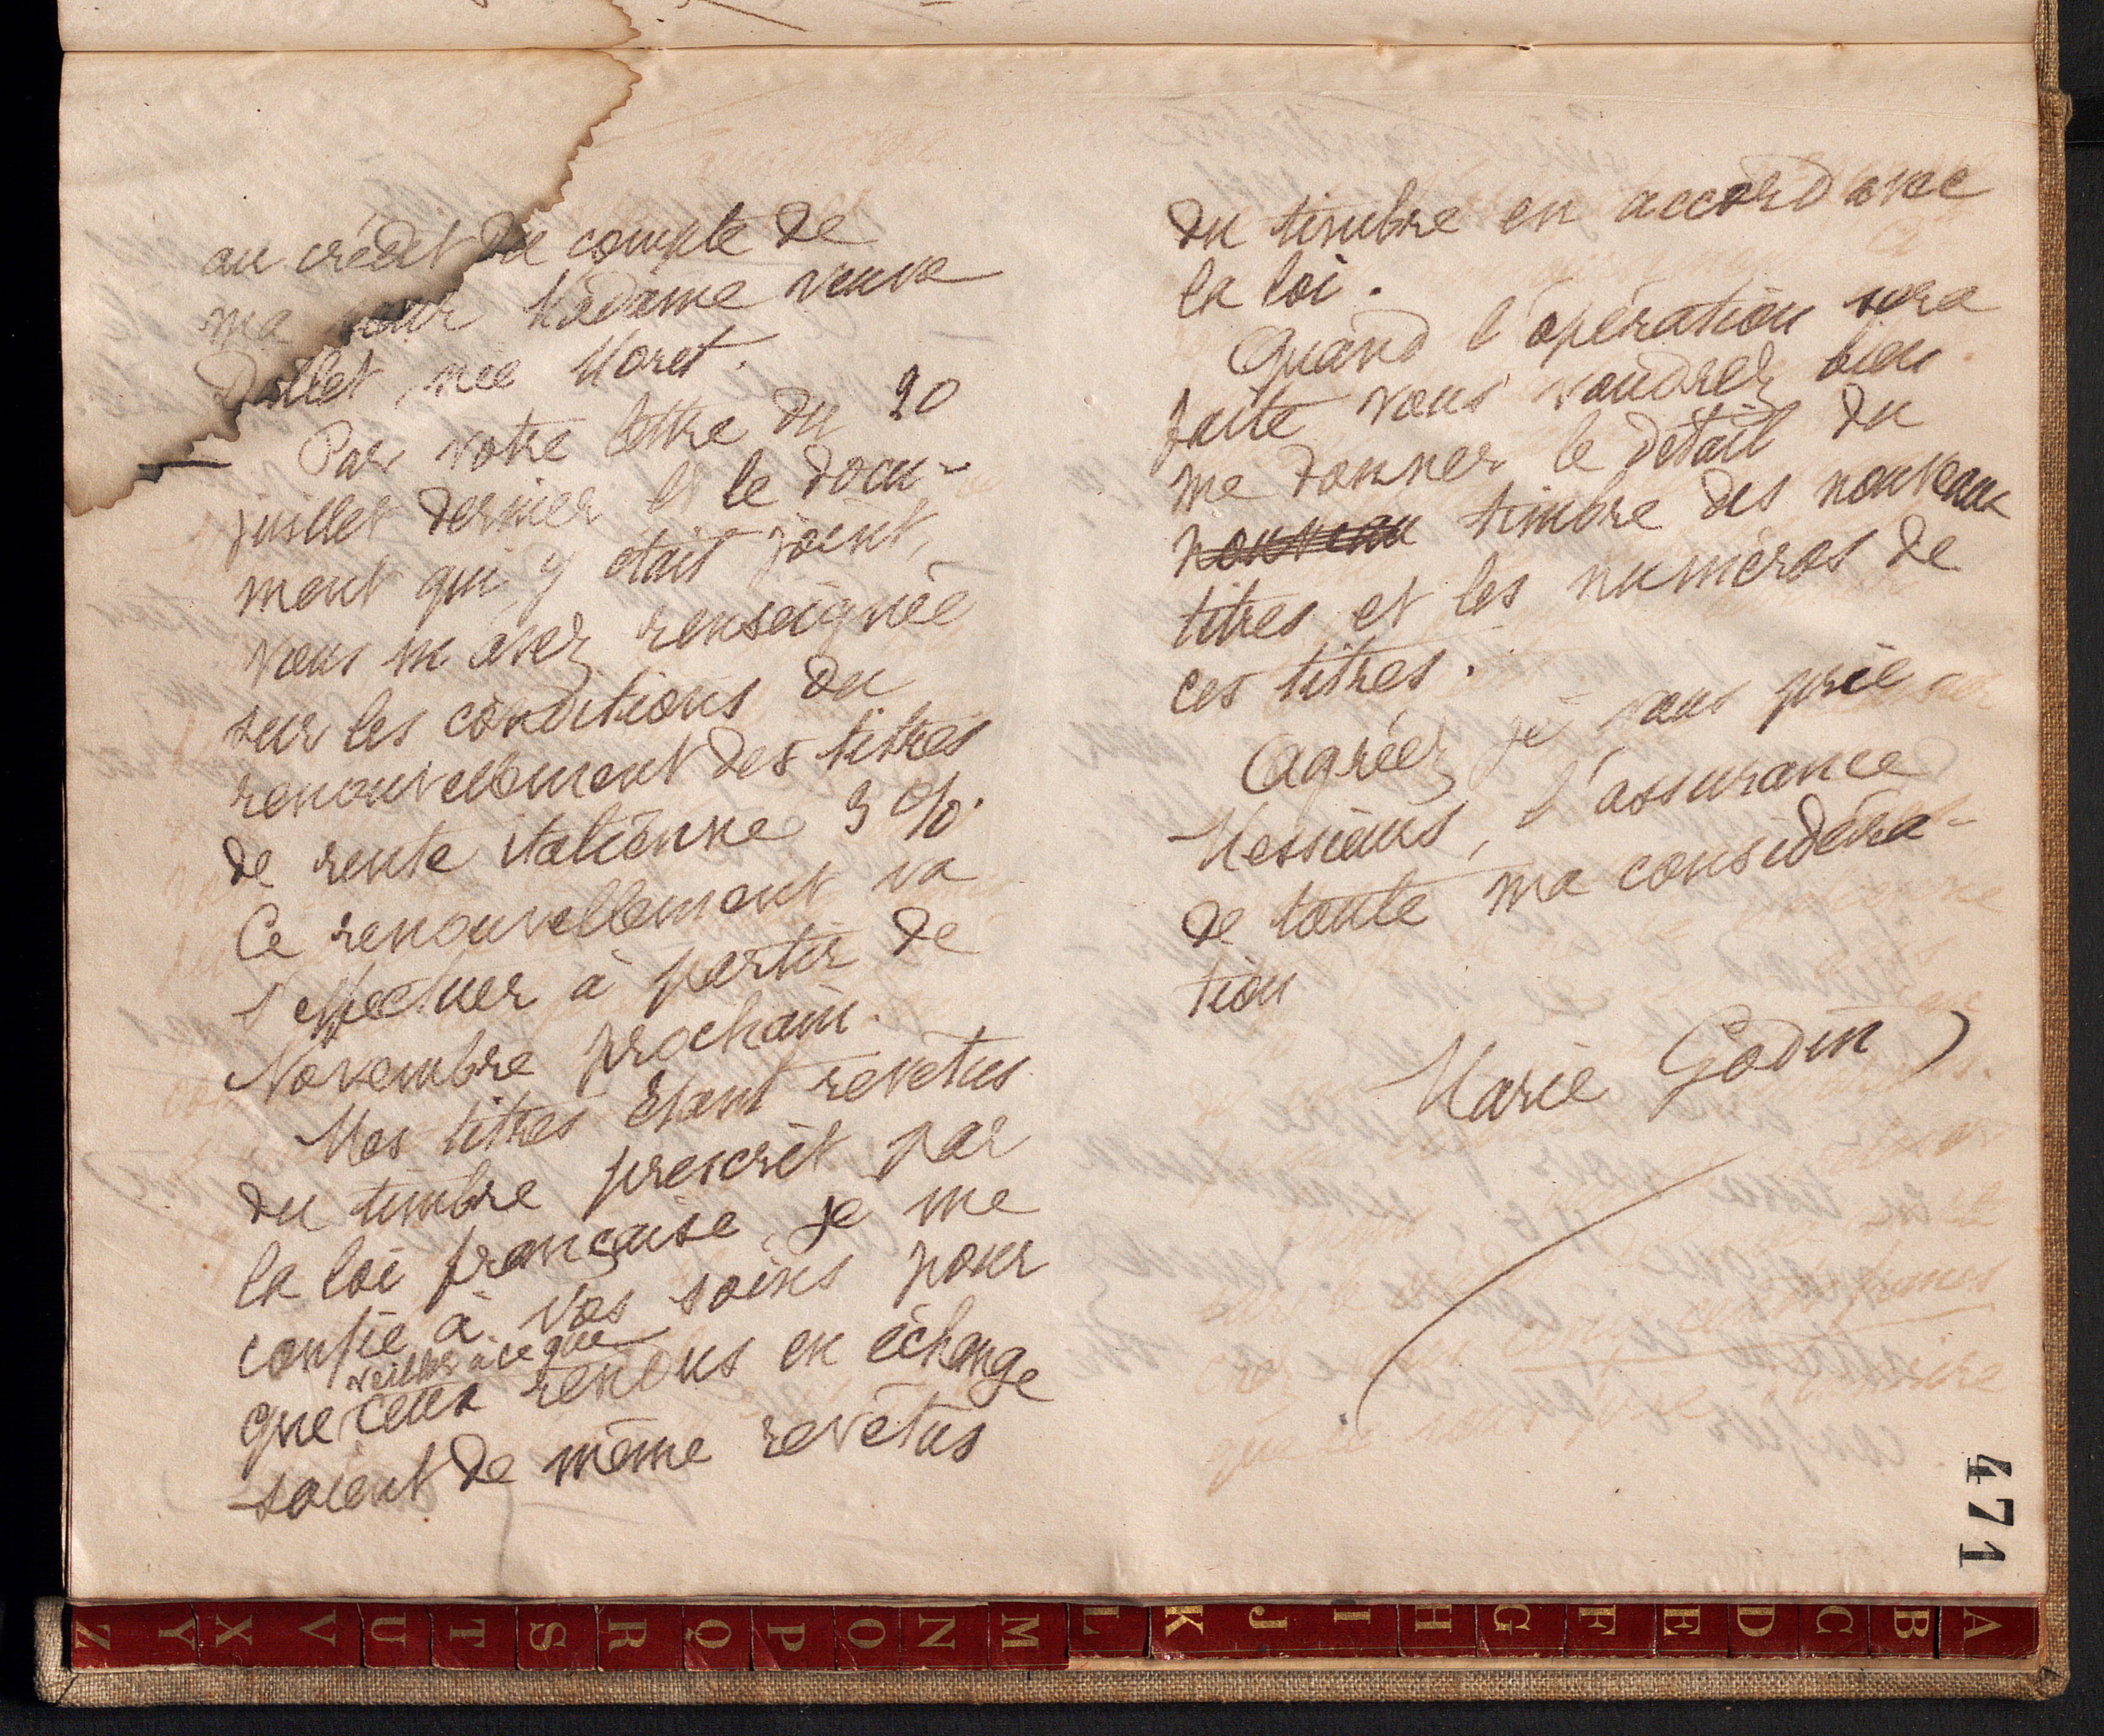 au crédit du compte de
ma sœur Madame veuve
Dallet née Moret.
Par votre lettre du 20
juillet dernier et le docu-
ment qui y était joint,
vous m'avez renseignée
sur les conditions du
renouvellement des titres
de rente italienne 3 %.
Ce renouvellement va
s'effectuer à partir de
Novembre prochain.
Mes titres étant revêtus
du timbre prescrit par
la loi française je me
confie à vos soins pour
veiller à ce que
que ceux rendus en échange
soient de même revêtus
du timbre en accord avec
la loi.
Quand l'opération sera
faite vous voudrez bien
me donner le détail du
nouveau timbre des nouveaux
titres et les numéros de
ces titres.
Agréez je vous prie
Messieurs, l'assurance
de toute ma considéra-
tion
Marie Godin
471
Z Y X V U T S R Q P O N M L K J I H G F E D C B A